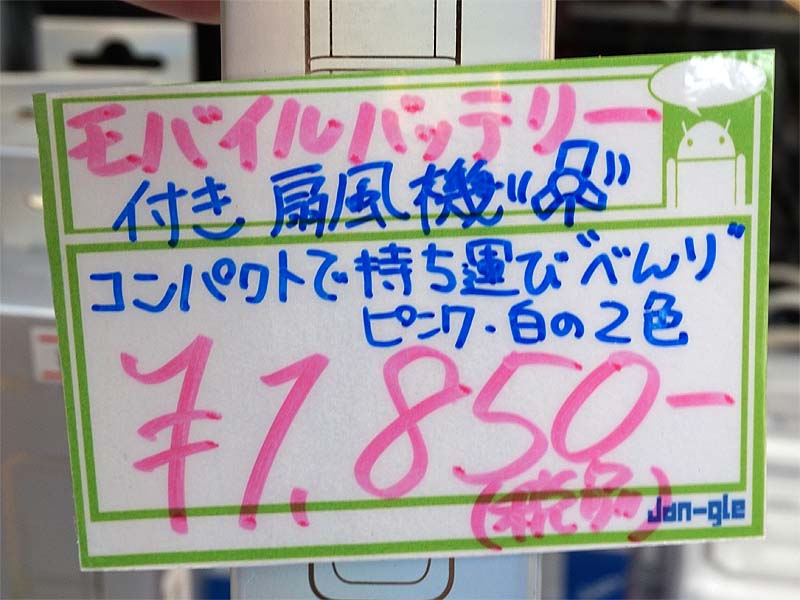 モバイルバッテリー
付き 扇風機""
コンパクトで持ち運び"べんり"
ピンク・白の2色
¥1,850-
(税別)
Jan-gle